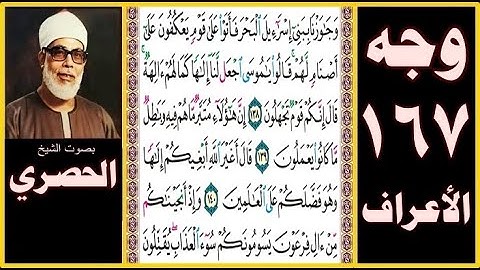 وجه
١٦٧
الأعراف
وَجَٰوَزْنَا بِبَنِىٓ إِسْرَٰٓءِيلَ ٱلْبَحْرَ فَأَتَوْا۟ عَلَىٰ قَوْمٍ يَعْكُفُونَ عَلَىٰٓ
أَصْنَامٍ لَّهُمْ ۚ قَالُوا۟ يَٰمُوسَى ٱجْعَل لَّنَآ إِلَٰهًا كَمَا لَهُمْ ءَالِهَةٌ ۚ
قَالَ إِنَّكُمْ قَوْمٌ تَجْهَلُونَ ١٣٨ إِنَّ هَٰٓؤُلَآءِ مُتَبَّرٌ مَّا هُمْ فِيهِ وَبَٰطِلٌ
مَّا كَانُوا۟ يَعْمَلُونَ ١٣٩ قَالَ أَغَيْرَ ٱللَّهِ أَبْغِيكُمْ إِلَٰهًا
وَهُوَ فَضَّلَكُمْ عَلَى ٱلْعَٰلَمِينَ ١٤٠ وَإِذْ أَنجَيْنَٰكُم
مِّنْ ءَالِ فِرْعَوْنَ يَسُومُونَكُمْ سُوٓءَ ٱلْعَذَابِ ۖ يُقَتِّلُونَ
بصوت الشيخ
الحصري